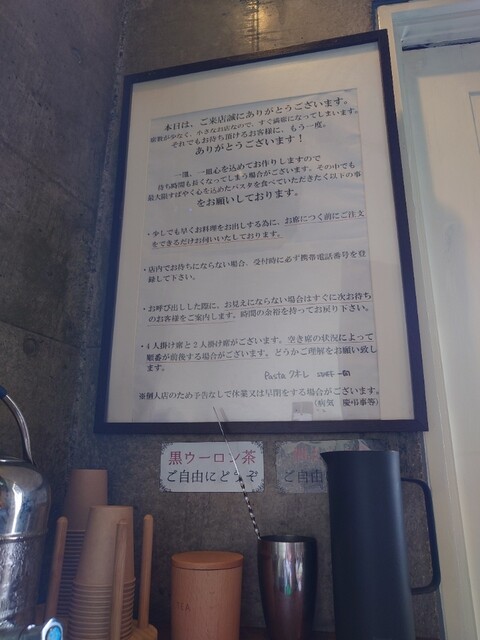 本日は、ご来店誠にありがとうございます。
座数が少なく、小さなお店なので、すぐ満席になってしまいます。
それでもお待ち頂けるお客様に、もう一度。
ありがとうございます！
一皿、一皿心を込めてお作りしますので
待ち時間も長くなってしまう場合がございます。その中でも
最大限すばやく心を込めたパスタを食べていただきたく以下の事
をお願いしております。
・少しでも早くお料理をお出しする為に、お席につく前にご注文
をできるだけお伺いいたしております。
・店内でお待ちにならない場合、受付時に必ず携帯電話番号を登
録して下さい。
・お呼び出しした際に、お見えにならない場合はすぐに次お待ち
のお客様をご案内します。時間の余裕を持ってお戻り下さい。
・4人掛け席と2人掛け席がございます。空き席の状況によって
順番が前後する場合がございます。どうかご理解をお願い致し
ます。
Pasta フオレ 一同
※個人店のため予告なしで休業又は早閉をする場合がございます。
(病気 慶弔事等)
黒ウーロン茶
ご自由にどうぞ
ご自由に
TEA